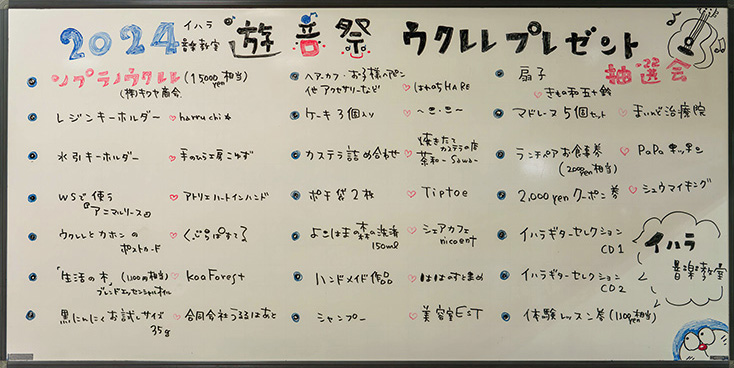 2024 イハラ音楽教室 遊音祭 ウクレレプレゼント
抽選会
ソプラノウクレレ (15000yen相当)
(株)キクヤ商会
レジンキーホルダー ♡ harruchi*
水引キーホルダー ♡ 手のひら工房こゆず
WSで使う
『アニマルリース』 ♡ アトリエハートインハンド
ウクレレとカホンの
ポストカード ♡ くぢらぱすて
「生活の木」(1100円相当)
ブレンドエッセンシャルオイル ♡ koaForest
黒にんにくお試しサイズ
35g ♡ 合同会社うるるはあと
ヘアーカフ・お子様ヘアピン
他アクセサリーなど ♡ はれのちHARE
ケーキ3個入り ♡ ~き・き~
カステラ詰め合わせ ♡ 焼きたてカステラの店
茶和-Sawa-
ポチ袋2枚 ♡ Tiptoe
よこはまの森の洗濯
150ml ♡ シェアカフェ
nicoent
ハンドメイド作品 ♡ ははのてまめ
シャンプー ♡ 美容室EST
扇子
♡ きもの和五十鈴
マドレーヌ5個セット ♡ まいど治療院
ランチペアお食事券
(2000yen相当) ♡ PaPaキッチン
2,000yenクーポン券 ♡ シュウマイキング
イハラギターセレクション
CD1
イハラギターセレクション
CD2
体験レッスン券(1100yen相当)
イハラ
音楽教室